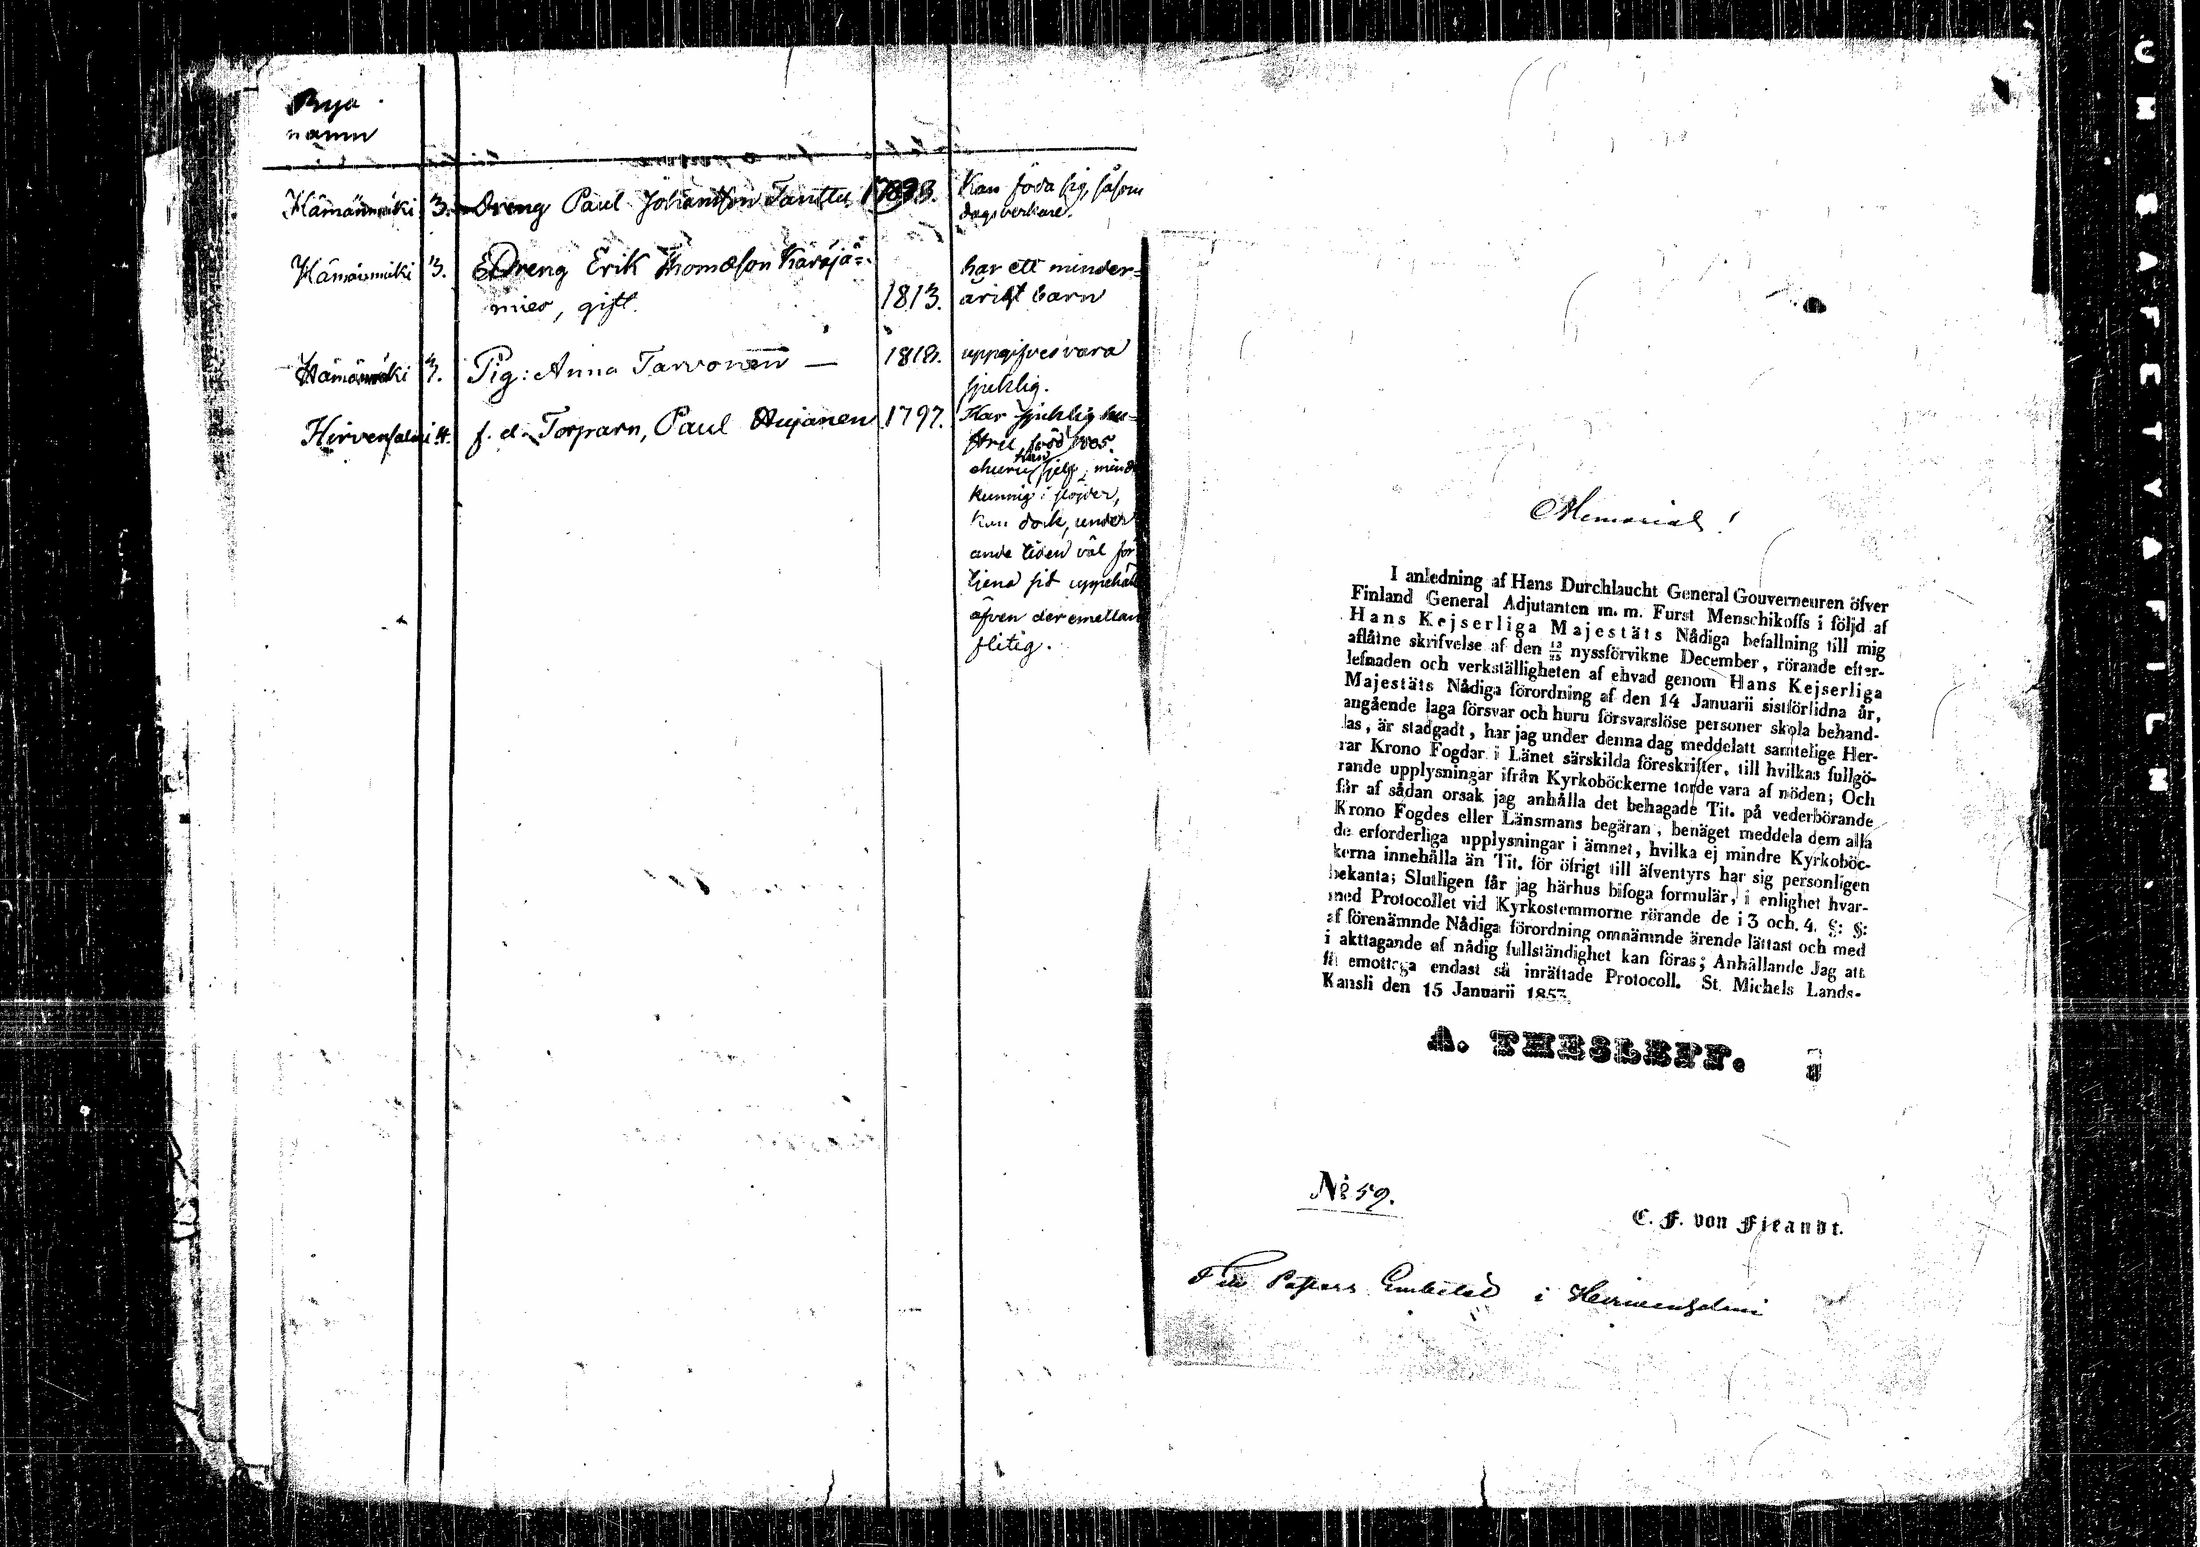 Bya
namn
Hämäänmäki 3. Dreng Paul Johansson Tanttu 1793. Kan föda sig, såsom
dagsverkare.
Hämäänmäki 3. Dreng Erik Thomasson Käräjä=
mies, gift. 1813.
har ett minder=
årigt barn
Hämäänmäki 3. Pig: Anna Tarvonen — 1818. uppgifves vara
sjuklig.
Hirvensalmi 4. f. d. Torparn, Paul Aujanen 1797. Har sjuklig hu=
stru, född 1805.
ehuru han sjelf, mindre
kunnig i slöjder,
kan dock, under
ande tiden väl för
tjena sit uppehäll
äfven deremellan
flitig.
Memorial!
I anledning af Hans Durchlaucht General Gouverneuren öfver
Finland General Adjutanten m. m. Furst Menschikoffs i följd af
Hans Kejserliga Majestäts Nådiga befallning till mig
aflåtne skrifvelse af den 13/25 nyssförvikne December, rörande efter-
lefnaden och verkställigheten af ehvad genom Hans Kejserliga
Majestäts Nådiga förordning af den 14 Januarii sistförlidna år,
angående laga försvar och huru försvarslöse personer skola behand-
las, är stadgadt, har jag under denna dag meddelatt samtelige Her-
rar Krono Fogdar i Länet särskilda föreskrifter, till hvilkas fullgö-
rande upplysningar ifrån Kyrkoböckerne torde vara af nöden; Och
får af sådan orsak jag anhålla det behagade Tit. på vederbörande
Krono Fogdes eller Länsmans begäran, benäget meddela dem alla
de erforderliga upplysningar i ämnet, hvilka ej mindre Kyrkoböc-
kerna innehålla än Tit. för öfrigt till äfventyrs har sig personligen
bekanta; Slutligen får jag härhus bifoga formulär, i enlighet hvar-
med Protocollet vid Kyrkostemmorne rörande de i 3 och. 4. §: §:
af förenämnde Nådiga förordning omnämnde ärende lättast och med
i akttagande af nådig fullständighet kan föras; Anhållande Jag att
få emottaga endast så inrättade Protocoll. St. Michels Lands-
Kansli den 15 Januarii
A. THESLEFF.
No 59.
C. F. von Fieandt.
Till Pastors Embetet i Hirvensalmi
ON SAFETY FILM